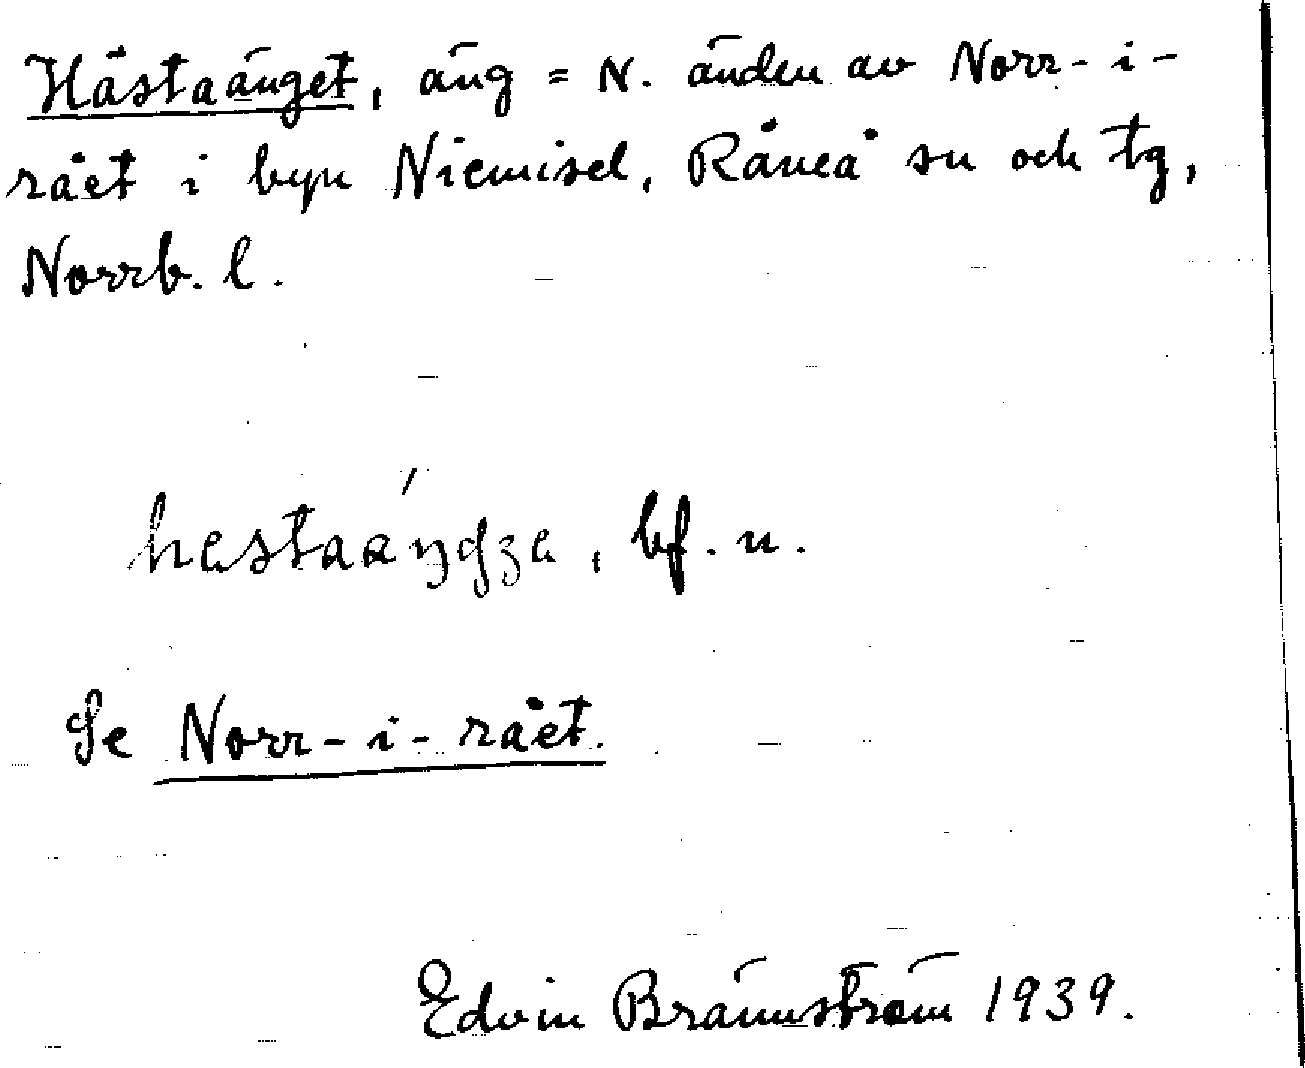 Hästaänget, äng = N. änden av Norr-i-
rået i byn Niemisel, Råneå sn och tg,
Norrb. l.
hestaáŋdʒe, bf. n.
Se Norr-i-rået.
Edvin Brännström 1939.